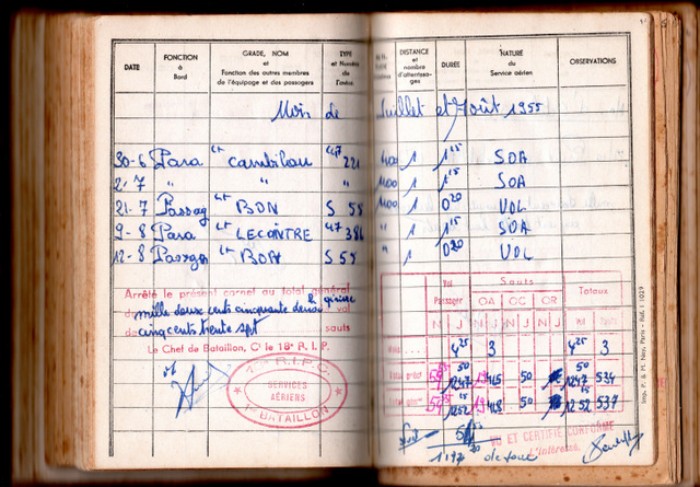 DATE FONCTION à Bord GRADE, NOM et Fonction des autres membres de l'équipage et des passagers TYPE et Numéro de l'avion DISTANCE et nombre d'atterrissages DURÉE NATURE du Service aérien OBSERVATIONS
Mois de Juillet et Août 1955
30-6 Para Lt Cambilau 47 221 1 1 15 SOA
2-7 " " " 1 1 15 SOA
21-7 Passag Lt BON S 55 1 0 20 VOL
9-8 Para Lt LECONTRE 47 386 " 1 1 15 SOA
12-8 Passager Lt BON S 55 " 1 0 20 VOL
Arrêté le présent carnet au total général
de mille deux cents cinquante deux h quinze vol
de cinq cents trente sept sauts
Le Chef de Bataillon, Ct le 18e R. I. P.
R.I.P.C. SERVICES AÉRIENS 1er BATAILLON
Vol Passager Sauts Totaux
OA OC OR
N J N J N J N J Vol Sauts
4 25 3 4 25 3
1247 50 50 1247 50 534
1252 15 50 1252 15 537
VU ET CERTIFIE CONFORME
L'intéressé,
Imp. P. & M. Ney, Paris - Réf. : 1029